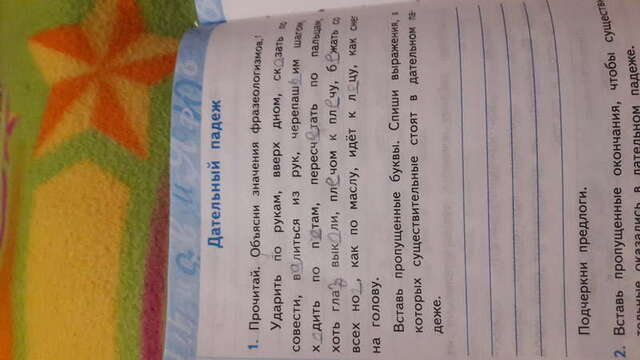 Дательный падеж
1. Прочитай. Объясни значения фразеологизмов.¹
Ударить по рукам, вверх дном, сказать по
совести, валиться из рук, черепашьим шагом,
ходить по пятам, пересчетать по пальцам,
хоть глаз выколи, плечом к плечу, бежать со
всех ног, как по маслу, идёт к лецу, как снег
на голову.
Вставь пропущенные буквы. Спиши выражения, в
которых существительные стоят в дательном па-
деже.
Подчеркни предлоги.
2. Вставь пропущенные окончания, чтобы сущест
тельные оказались в дательном падеже.